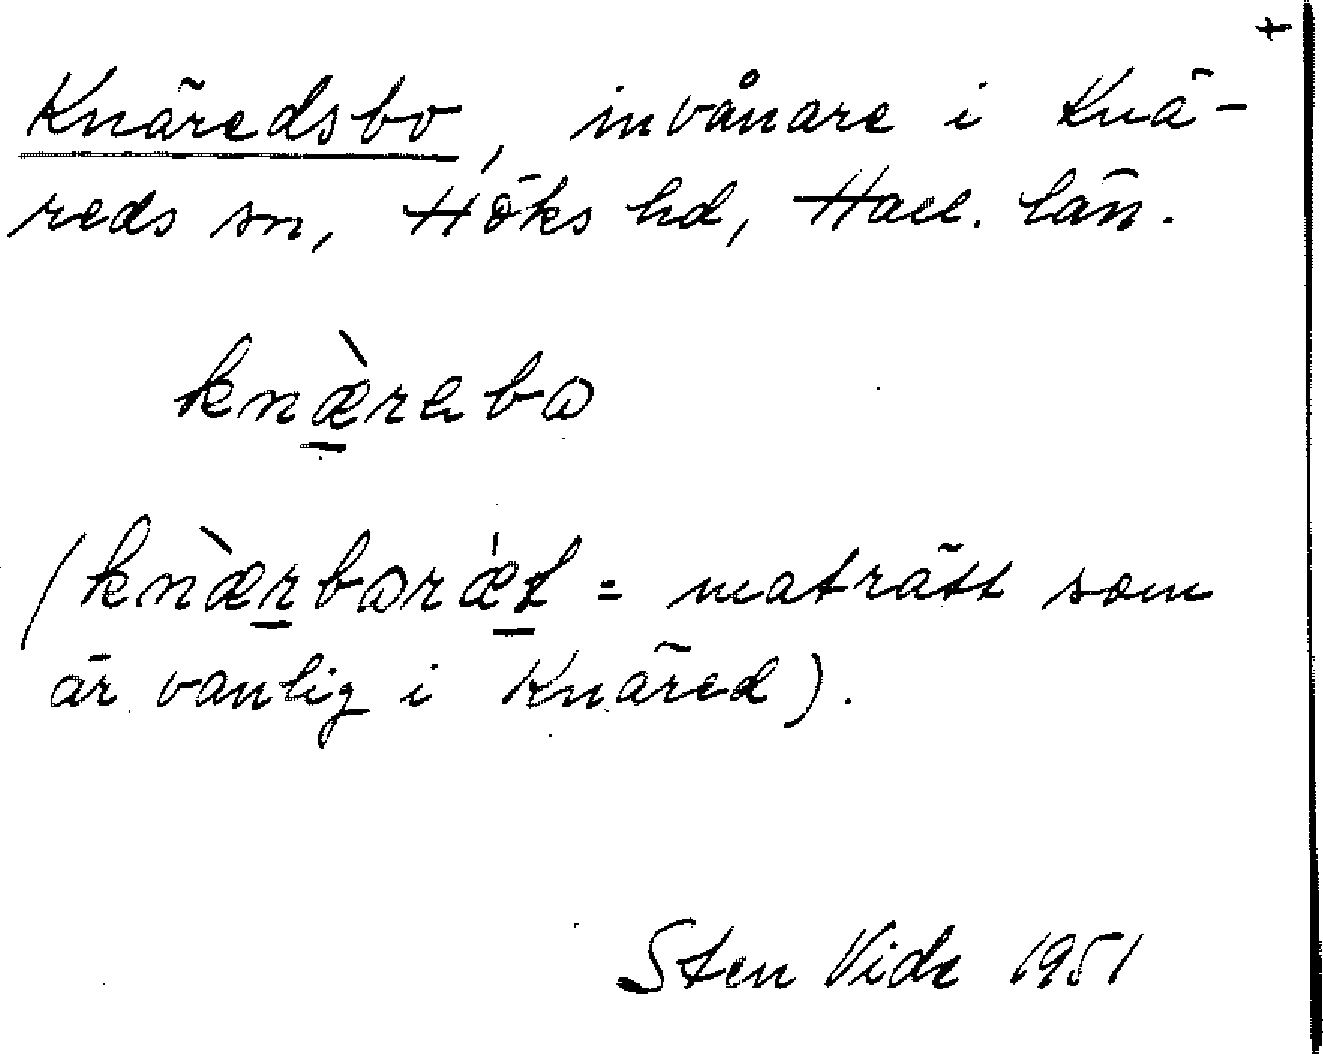 t
Knäredsbo, invånare i Knä-
reds sn, Höks hd, Hall. län.
knæ̀rebɷ
(knæ̀rbɷrǽt = maträtt som
är vanlig i Knäred).
Sten Vide 1951